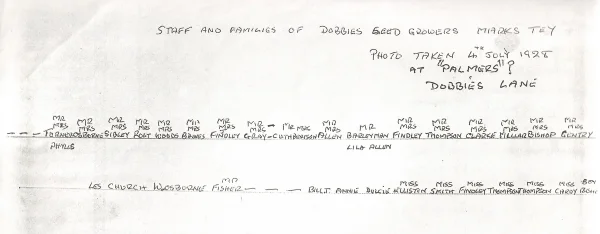 STAFF AND FAMILIES OF DOBBIES SEED GROWERS MARKS TEY
PHOTO TAKEN 4TH JULY 1928
AT "PALMERS"?
DOBBIES LANE
MR MR MR MR MR MR MR MR - MR MRS MR MR MR MR MR MR MR MR
MRS MRS MRS MRS MRS MRS MRS MRS MRS MRS MRS MRS MRS MRS MRS
--- TURNER OSBORNE SIBLEY ROLT WOODS BAINES FINDLEY GRAY - CUTHBERTSON ALLEN BARLEYMAN FINDLEY THOMPSON CLARKE MILLAR BISHOP GENTRY
PHYLLIS LILA ALLEN
MR MISS MISS MISS MISS MISS MISS BEN
LES CHURCH W.OSBORNE FISHER - - - BILLT ANNIE DULCIE HUISTEN SMITH FINDLEY THOMPSON THOMPSON